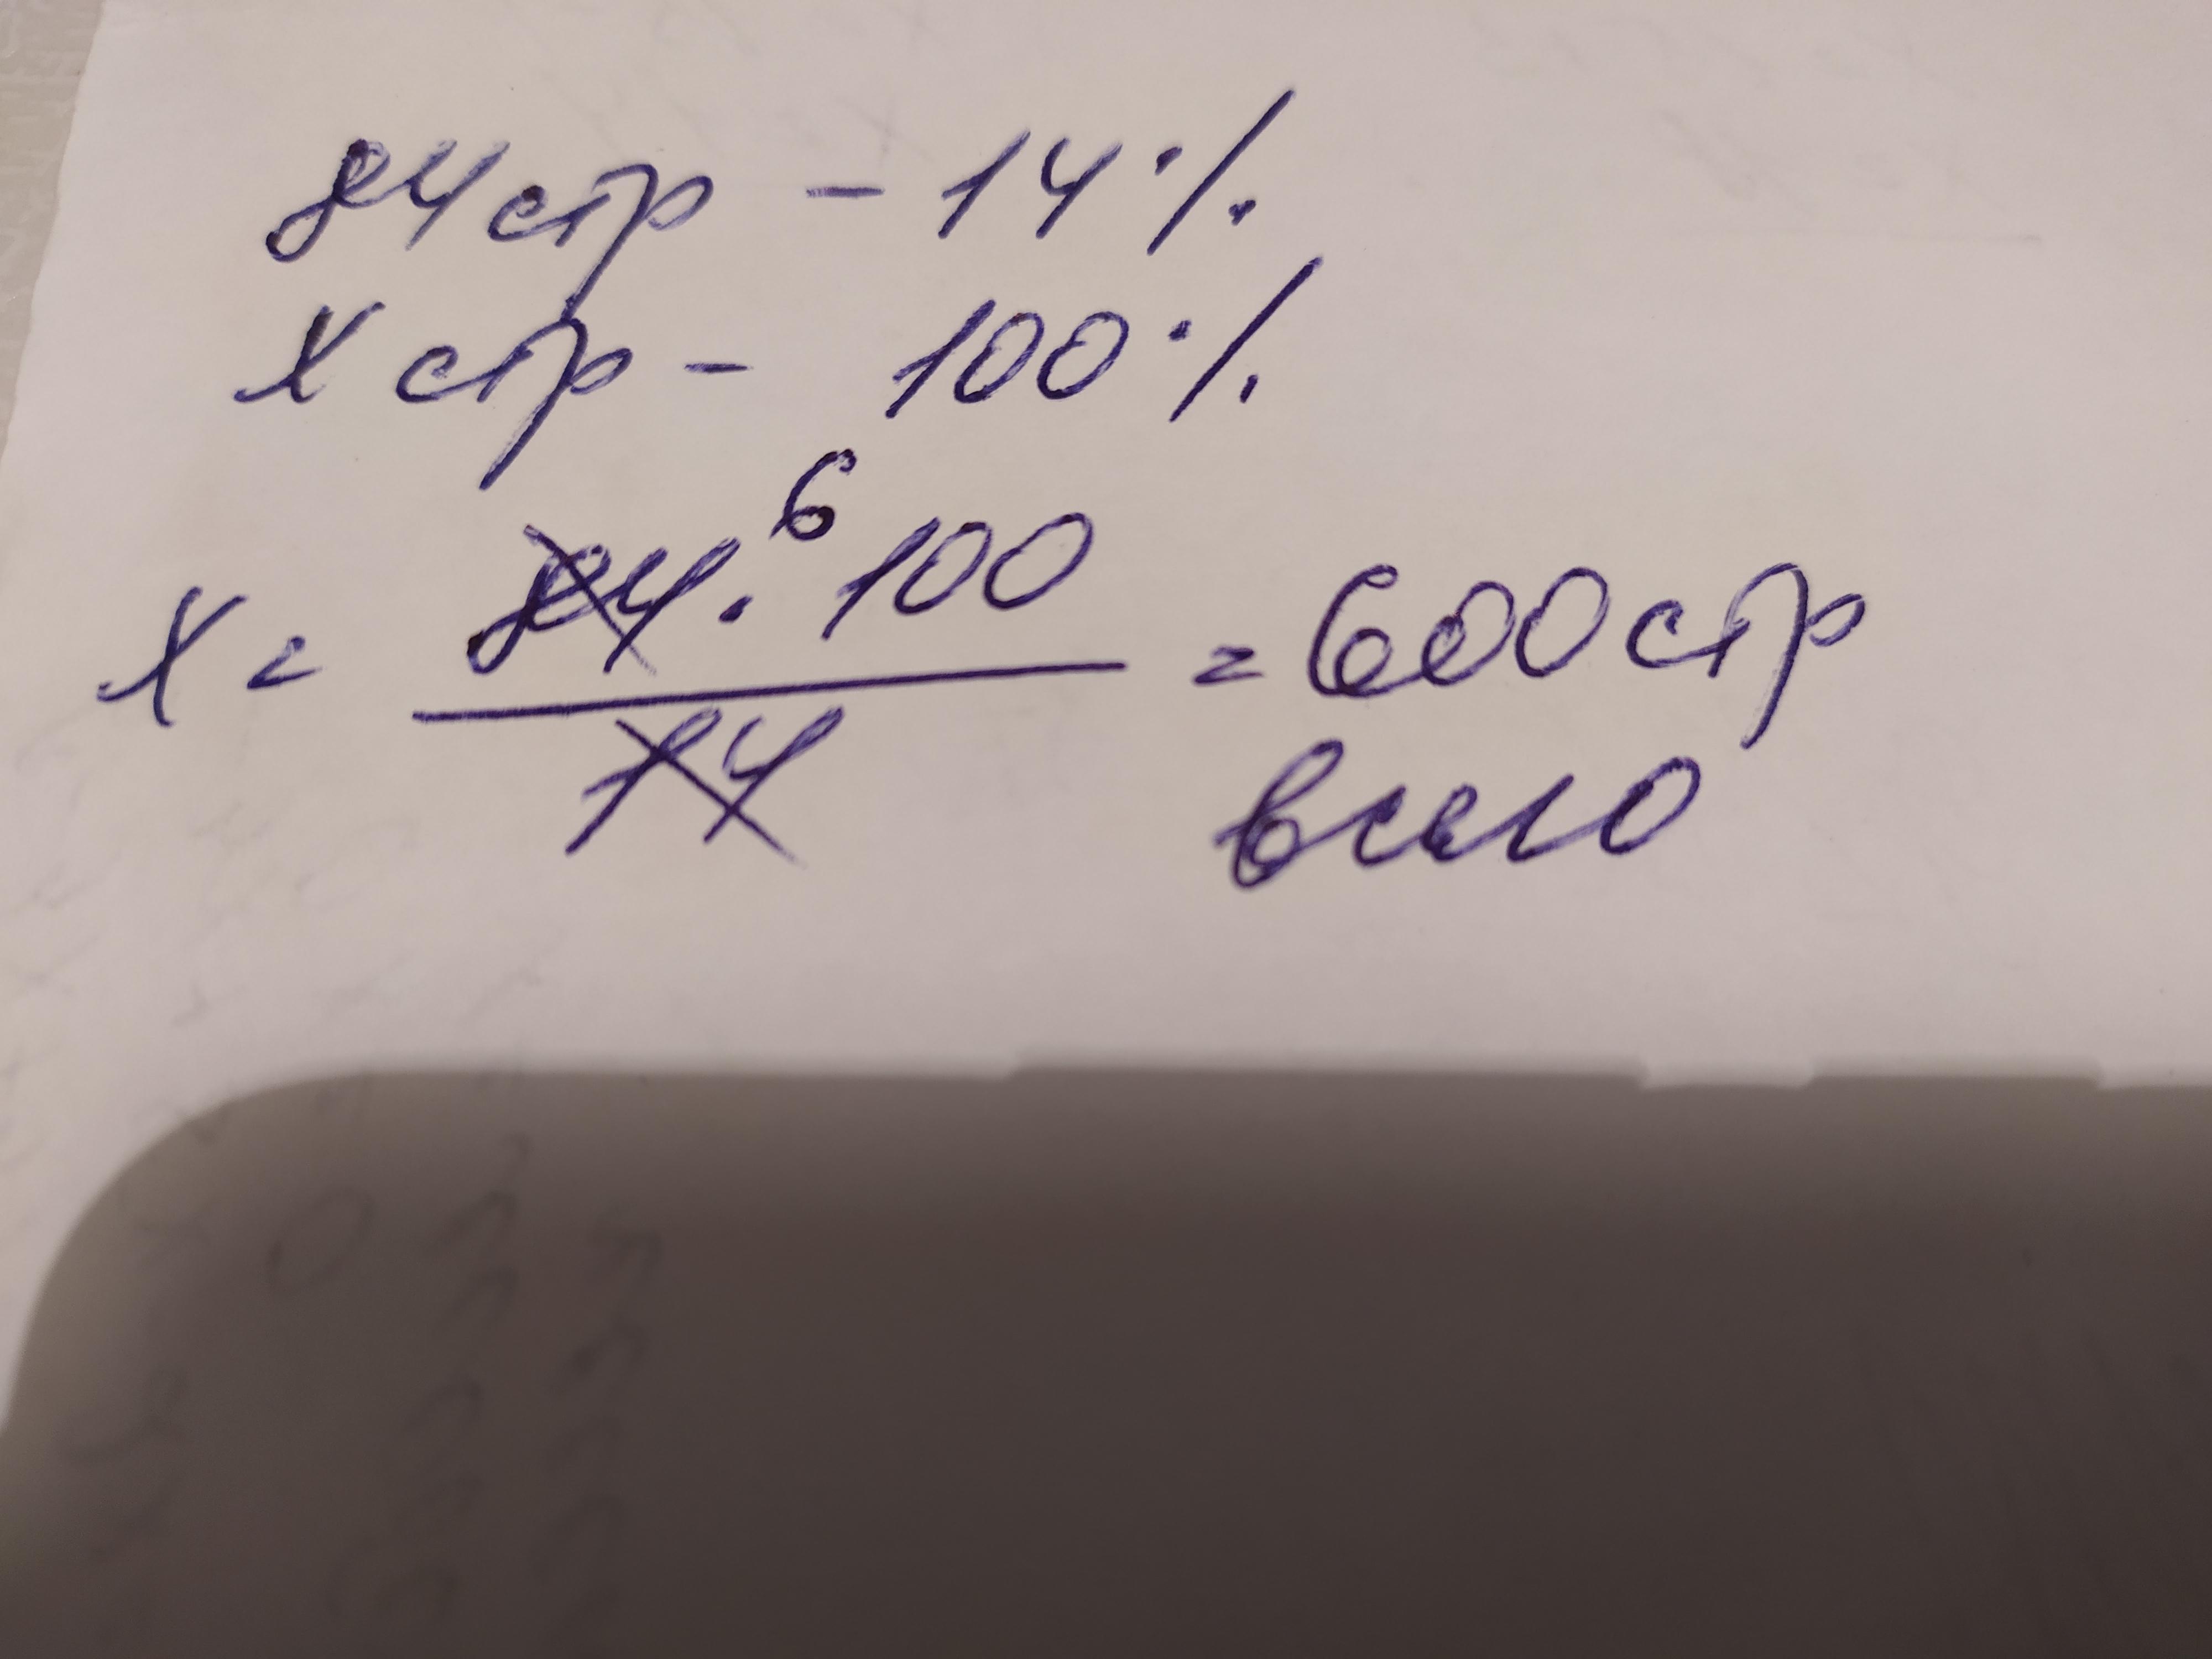 84 стр - 14%
x стр - 100%
x = 84 · 100 / 14 = 600 стр
6
всего